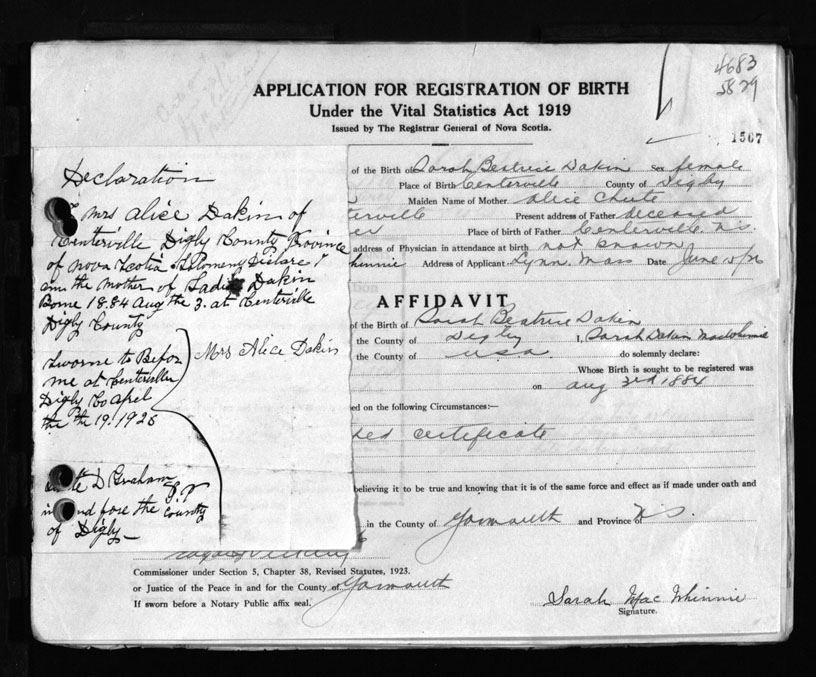 4683
5829
APPLICATION FOR REGISTRATION OF BIRTH
Under the Vital Statistics Act 1919
Issued by The Registrar General of Nova Scotia.
1567
of the Birth of Sarah Beatrice Dakin sex female
Place of Birth Centerville County of Digby
Maiden Name of Mother Alice Chute
terville Present address of Father deceased
er Place of birth of Father Centerville N.S.
address of Physician in attendance at birth not known
hinnie Address of Applicant Lynn. Mass Date June
AFFIDAVIT
of the Birth of Sarah Beatrice Daken
the County of Digby I, Sarah Dakin MacWhinnie
the County of USA do solemnly declare:
Whose Birth is sought to be registered was
on aug 3rd 1884
ed on the following Circumstances:—
certificate
believing it to be true and knowing that it is of the same force and effect as if made under oath and
in the County of Yarmouth and Province of N S.
Commissioner under Section 5, Chapter 38, Revised Statutes, 1923.
or Justice of the Peace in and for the County of Yarmouth
If sworn before a Notary Public affix seal.
Sarah Mac Whinnie
Signature.
Declaration
I mrs Alice Dakin of
Centerville Digby County Province
of nova Scotia Solomeny Diclare I
am the mother of Sadie Dakin
Borne 1884 Aug the 3. at Centerville
Digby County
Mrs Alice Dakin
Sworne to Befor
me at Centerville
Digby Co Apel
the 19. 1926
D Graham
J.P
in and fore the County
of Digby—